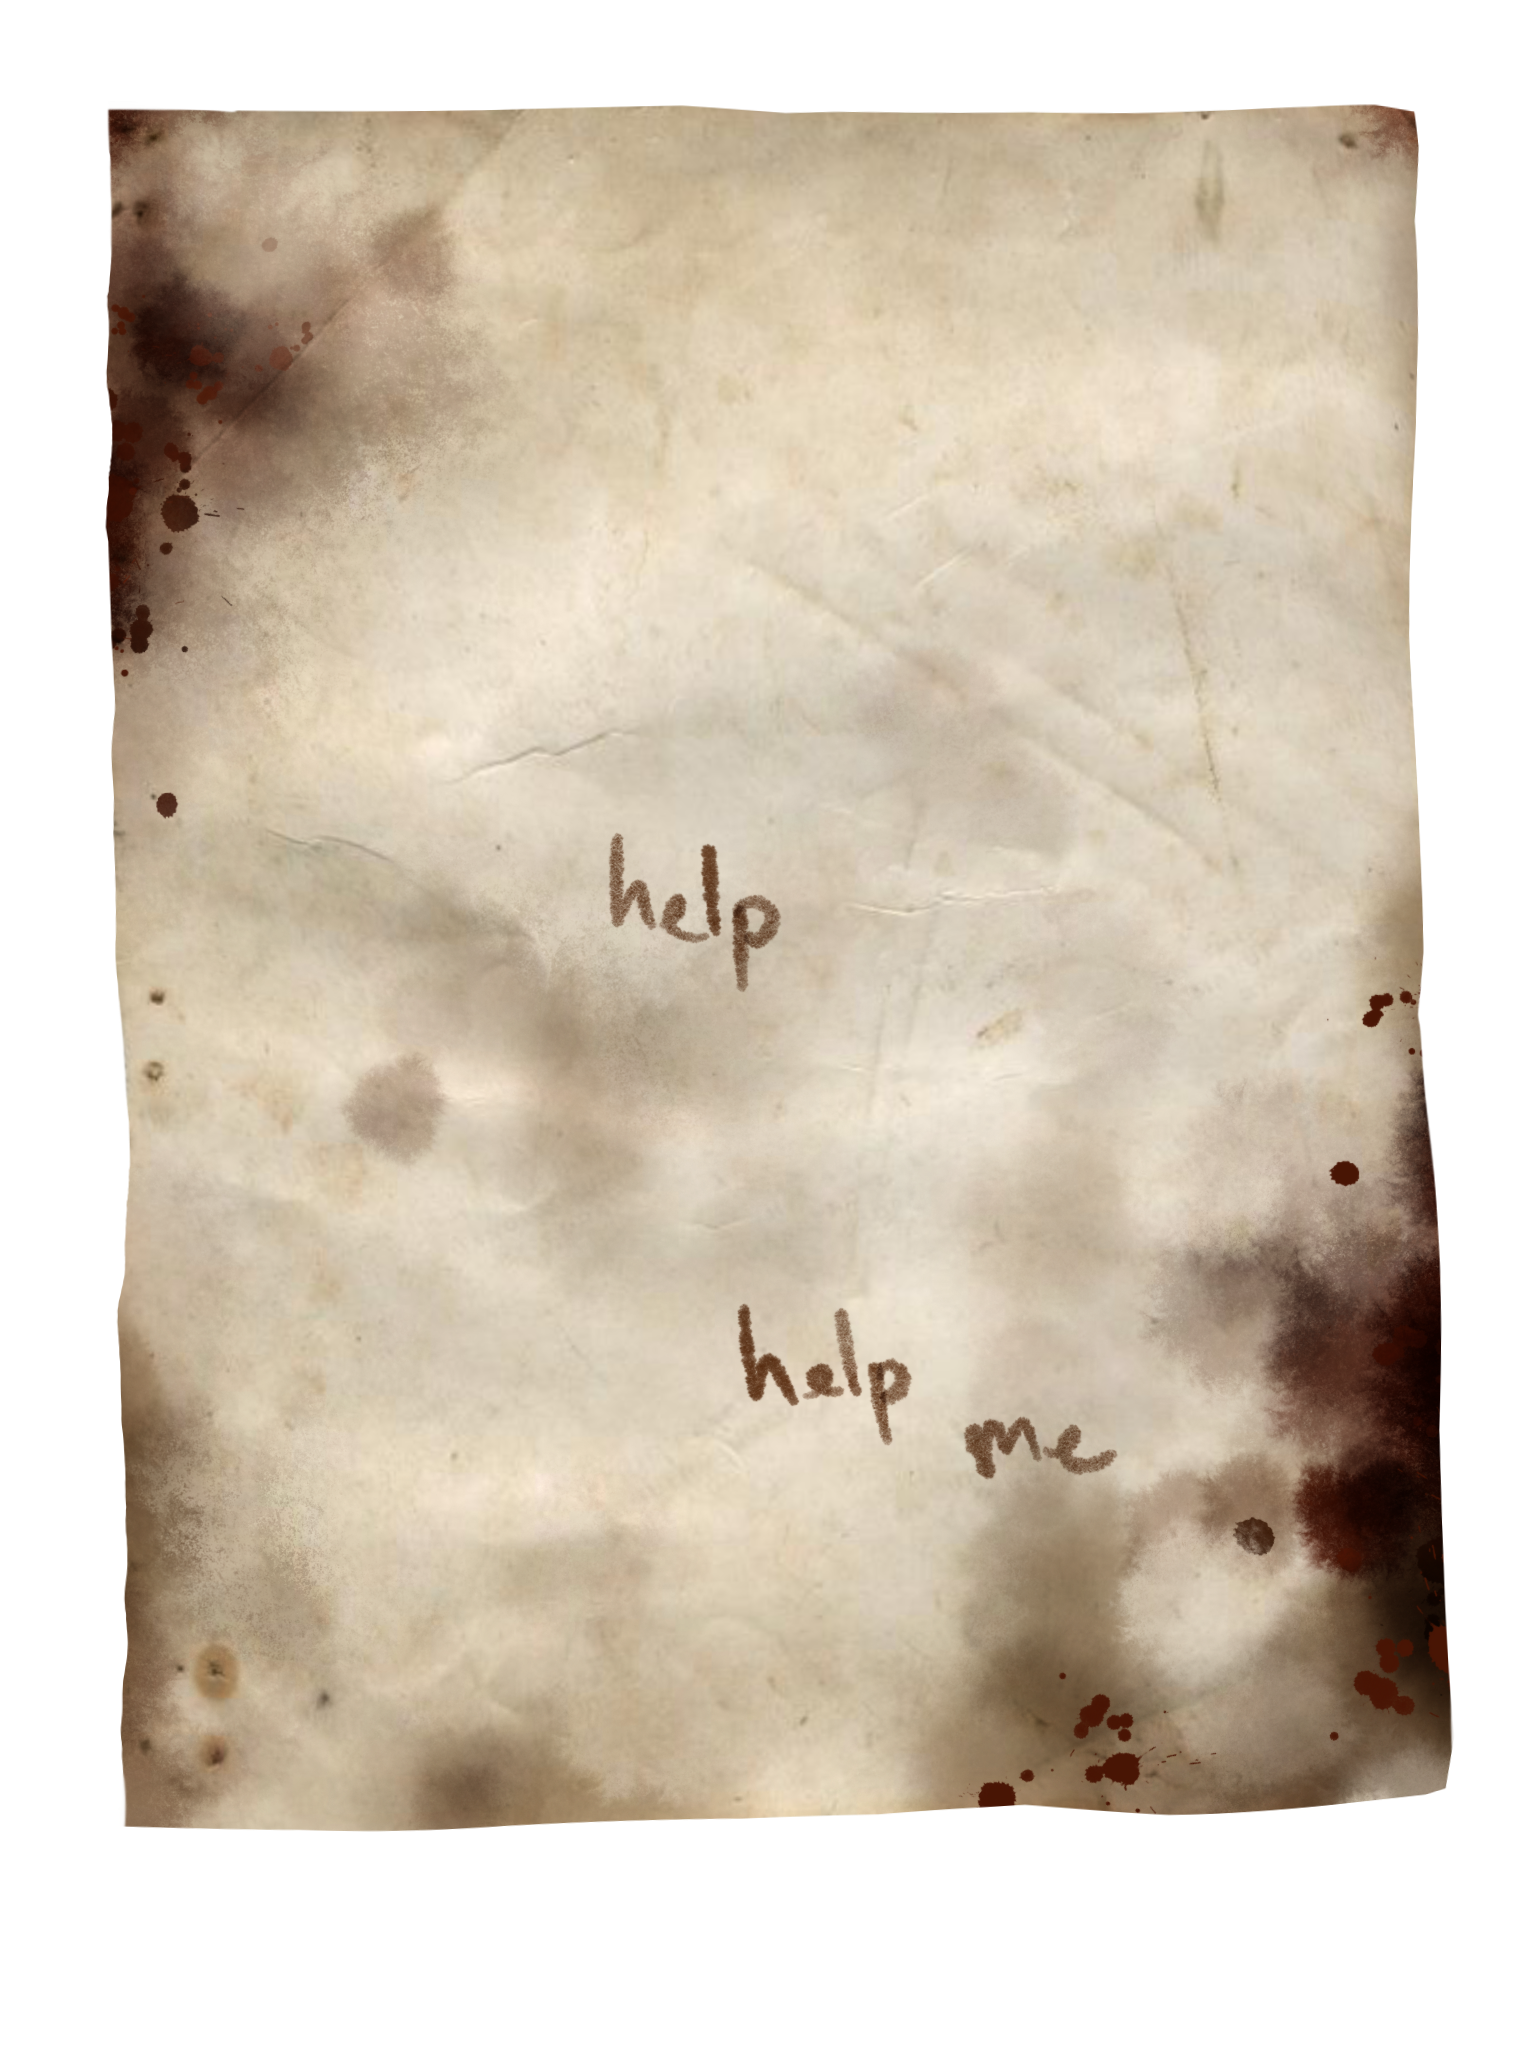 help
help
me